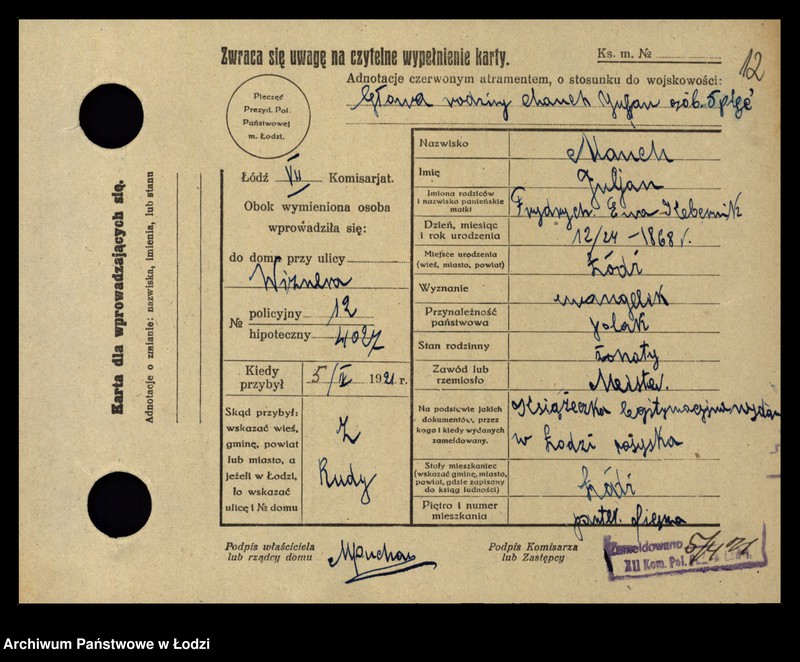 Zwraca się uwagę na czytelne wypełnienie karty.
Ks. m. №
12
Adnotacje czerwonym atramentem, o stosunku do wojskowości:
Głowa rodziny Manch Juljan osób
Pieczęć
Prezyd. Pol.
Państwowej
m. Łodzi.
Łódź VII Komisarjat.
Obok wymieniona osoba
wprowadziła się:
do domu przy ulicy
Wiznera
№ policyjny 12
hipoteczny 4027
Kiedy
przybył 5/IV 1921 r.
Skąd przybył:
wskazać wieś,
gminę, powiat
lub miasto, a
jeżeli w Łodzi,
to wskazać
ulicę i № domu
Z
Rudy
Nazwisko Manch
Imię Juljan
Imiona rodziców
i nazwisko panieńskie
matki
Frydrych Ewa
Dzień, miesiąc
i rok urodzenia 12/24 - 1868 r.
Miejsce urodzenia
(wieś, miasto, powiat) Łódź
Wyznanie ewangelik
Przynależność
państwowa polak
Stan rodzinny żonaty
Zawód lub
rzemiosło Majster.
Na podstawie jakich
dokumentów, przez
kogo i kiedy wydanych
zameldowany.
Książeczka legitymacyjna wydan
w Łodzi
Stały mieszkaniec
(wskazać gminę, miasto,
powiat, gdzie zapisany
do ksiąg ludności) Łódź
Piętro i numer
mieszkania
Podpis właściciela
lub rządcy domu
Podpis Komisarza
lub Zastępcy
Zameldowano 5/4 21
XII Kom. Pol.
Karta dla wprowadzających się.
Adnotacje o zmianie: nazwiska, imienia, lub stanu
Archiwum Państwowe w Łodzi